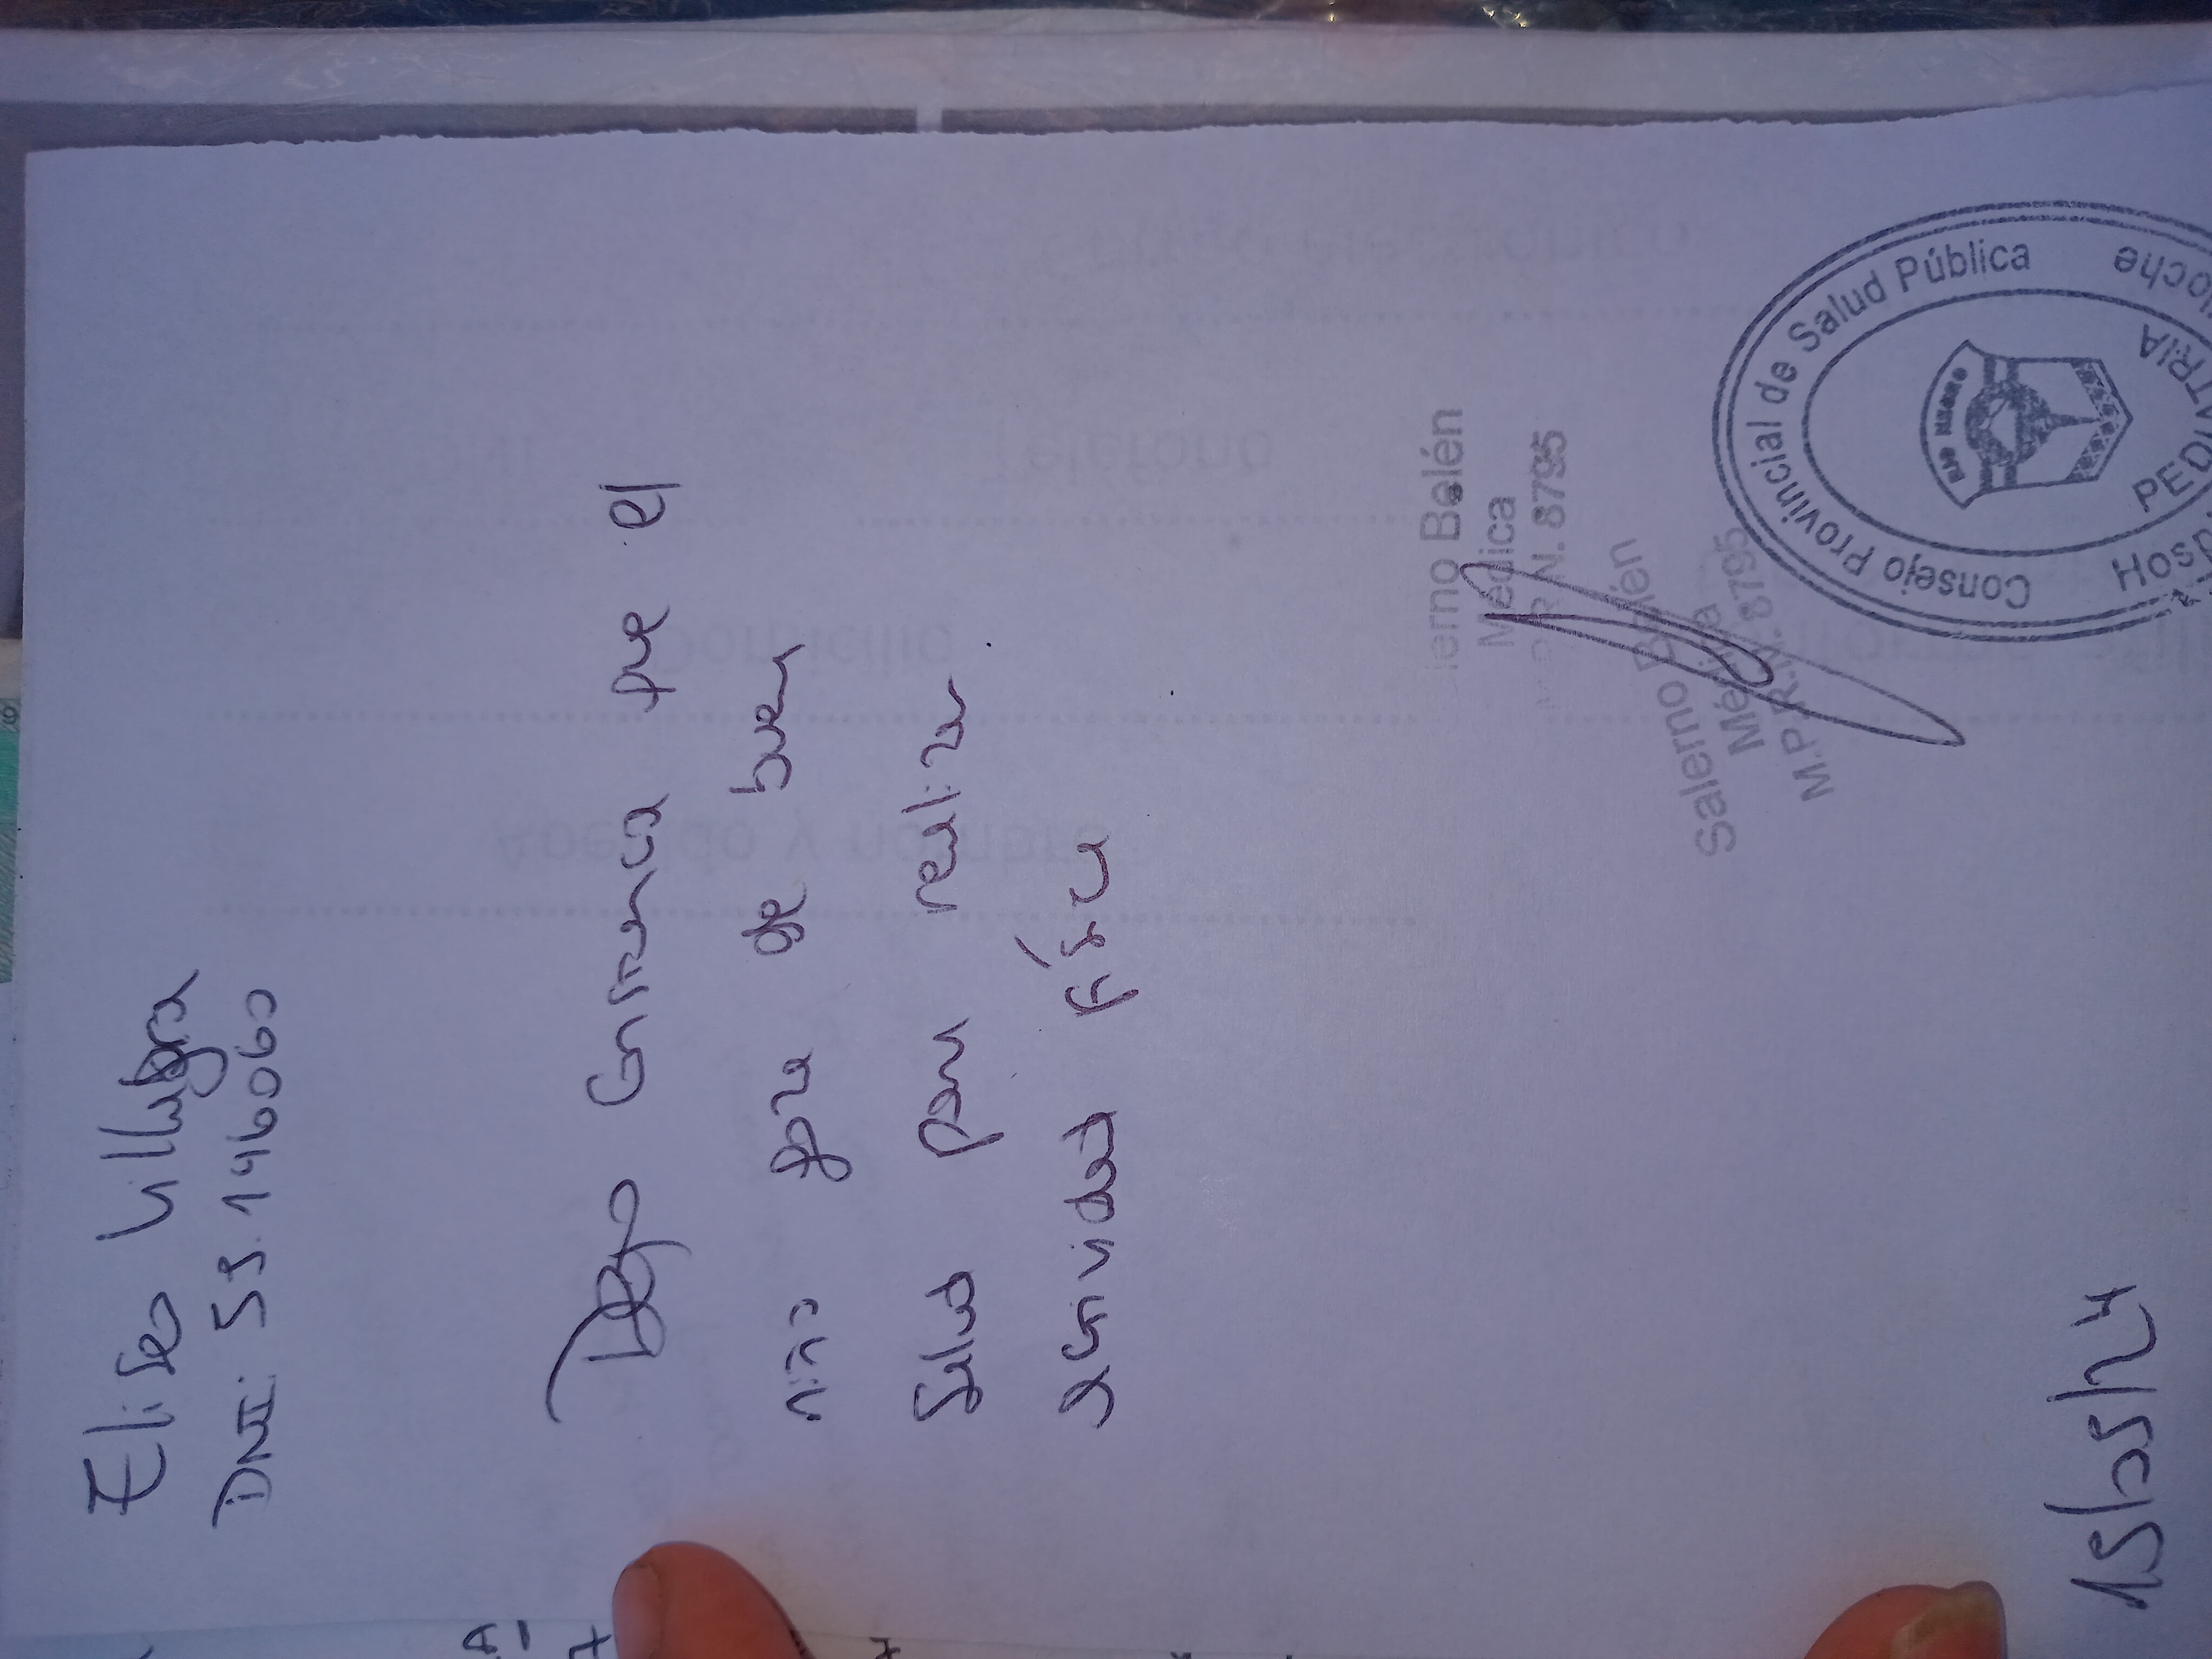 Eliseo Villagra
DNI: 59.146060
Dejo Constancia que el
niño goza de buena
Salud para realizar
actividad física
lerno Belén
Médica
M.P.R.N. 8795
Salerno Belén
Médica
M.P.R.N. 8795
Consejo Provincial de Salud Pública
RIO NEGRO
PEDIATRIA
Hosp
loche
15/05/24